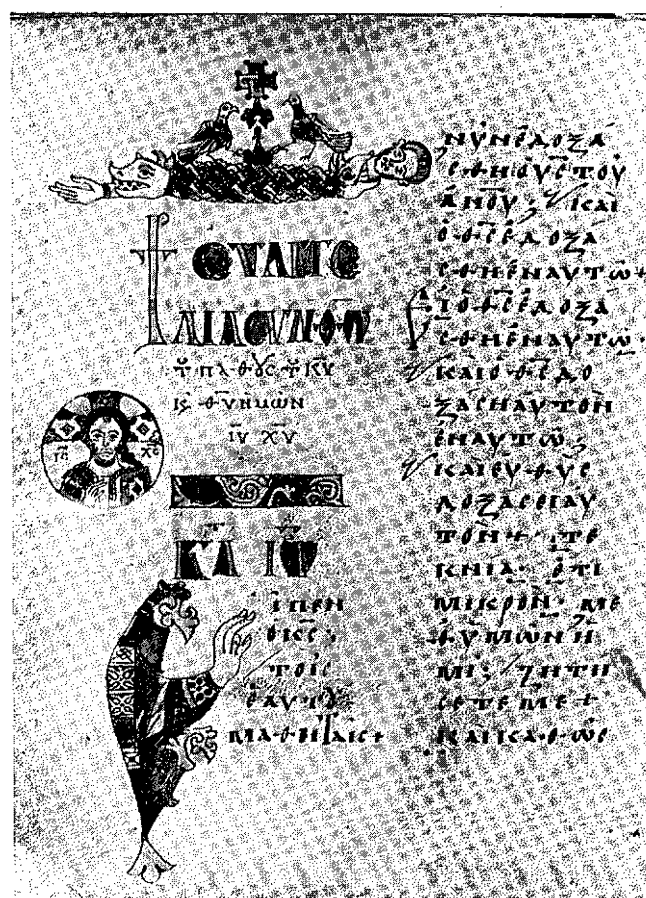 ΤΕΥΑΓΓΕ
ΛΙΑ CΥΝ ΘΩ
Τ ΠΑΘΟΥC Τ ΚΥ
Κ ΘΥ ΗΜΩΝ
ΙΥ ΧΥ
ΙC ΧC
ΚΑΤ ΙΩ
ΕΙΠΕΝ
Ο ΚC
ΤΟΙC
ΕΑΥΤΟΥ
ΜΑΘΗΤΑΙC+
ΝΥΝ ΕΔΟΞΑ
CΘΗ Ο ΥC ΤΟΥ
ΑΝΟΥ· ΚΑΙ
Ο ΘC ΕΔΟΞΑ
CΘΗ ΕΝ ΑΥΤΩ+
ΕΙ Ο ΘC ΕΔΟΞΑ
CΘΗ ΕΝ ΑΥΤΩ·
ΚΑΙ Ο ΘC ΔΟ
ΞΑCΗ ΑΥΤΟΝ
ΕΝ ΑΥΤΩ·
ΚΑΙ ΕΥΘΥC
ΔΟΞΑCΕΙ ΑΥ
ΤΟΝ+ ΤΕ
ΚΝΙΑ· ΕΤΙ
ΜΙΚΡΟΝ· ΜΕ
Θ ΥΜΩΝ Η
ΜΙ· ΖΗΤΗ
CΕΤΕ ΜΕ+
ΚΑΙ ΚΑΘΩC